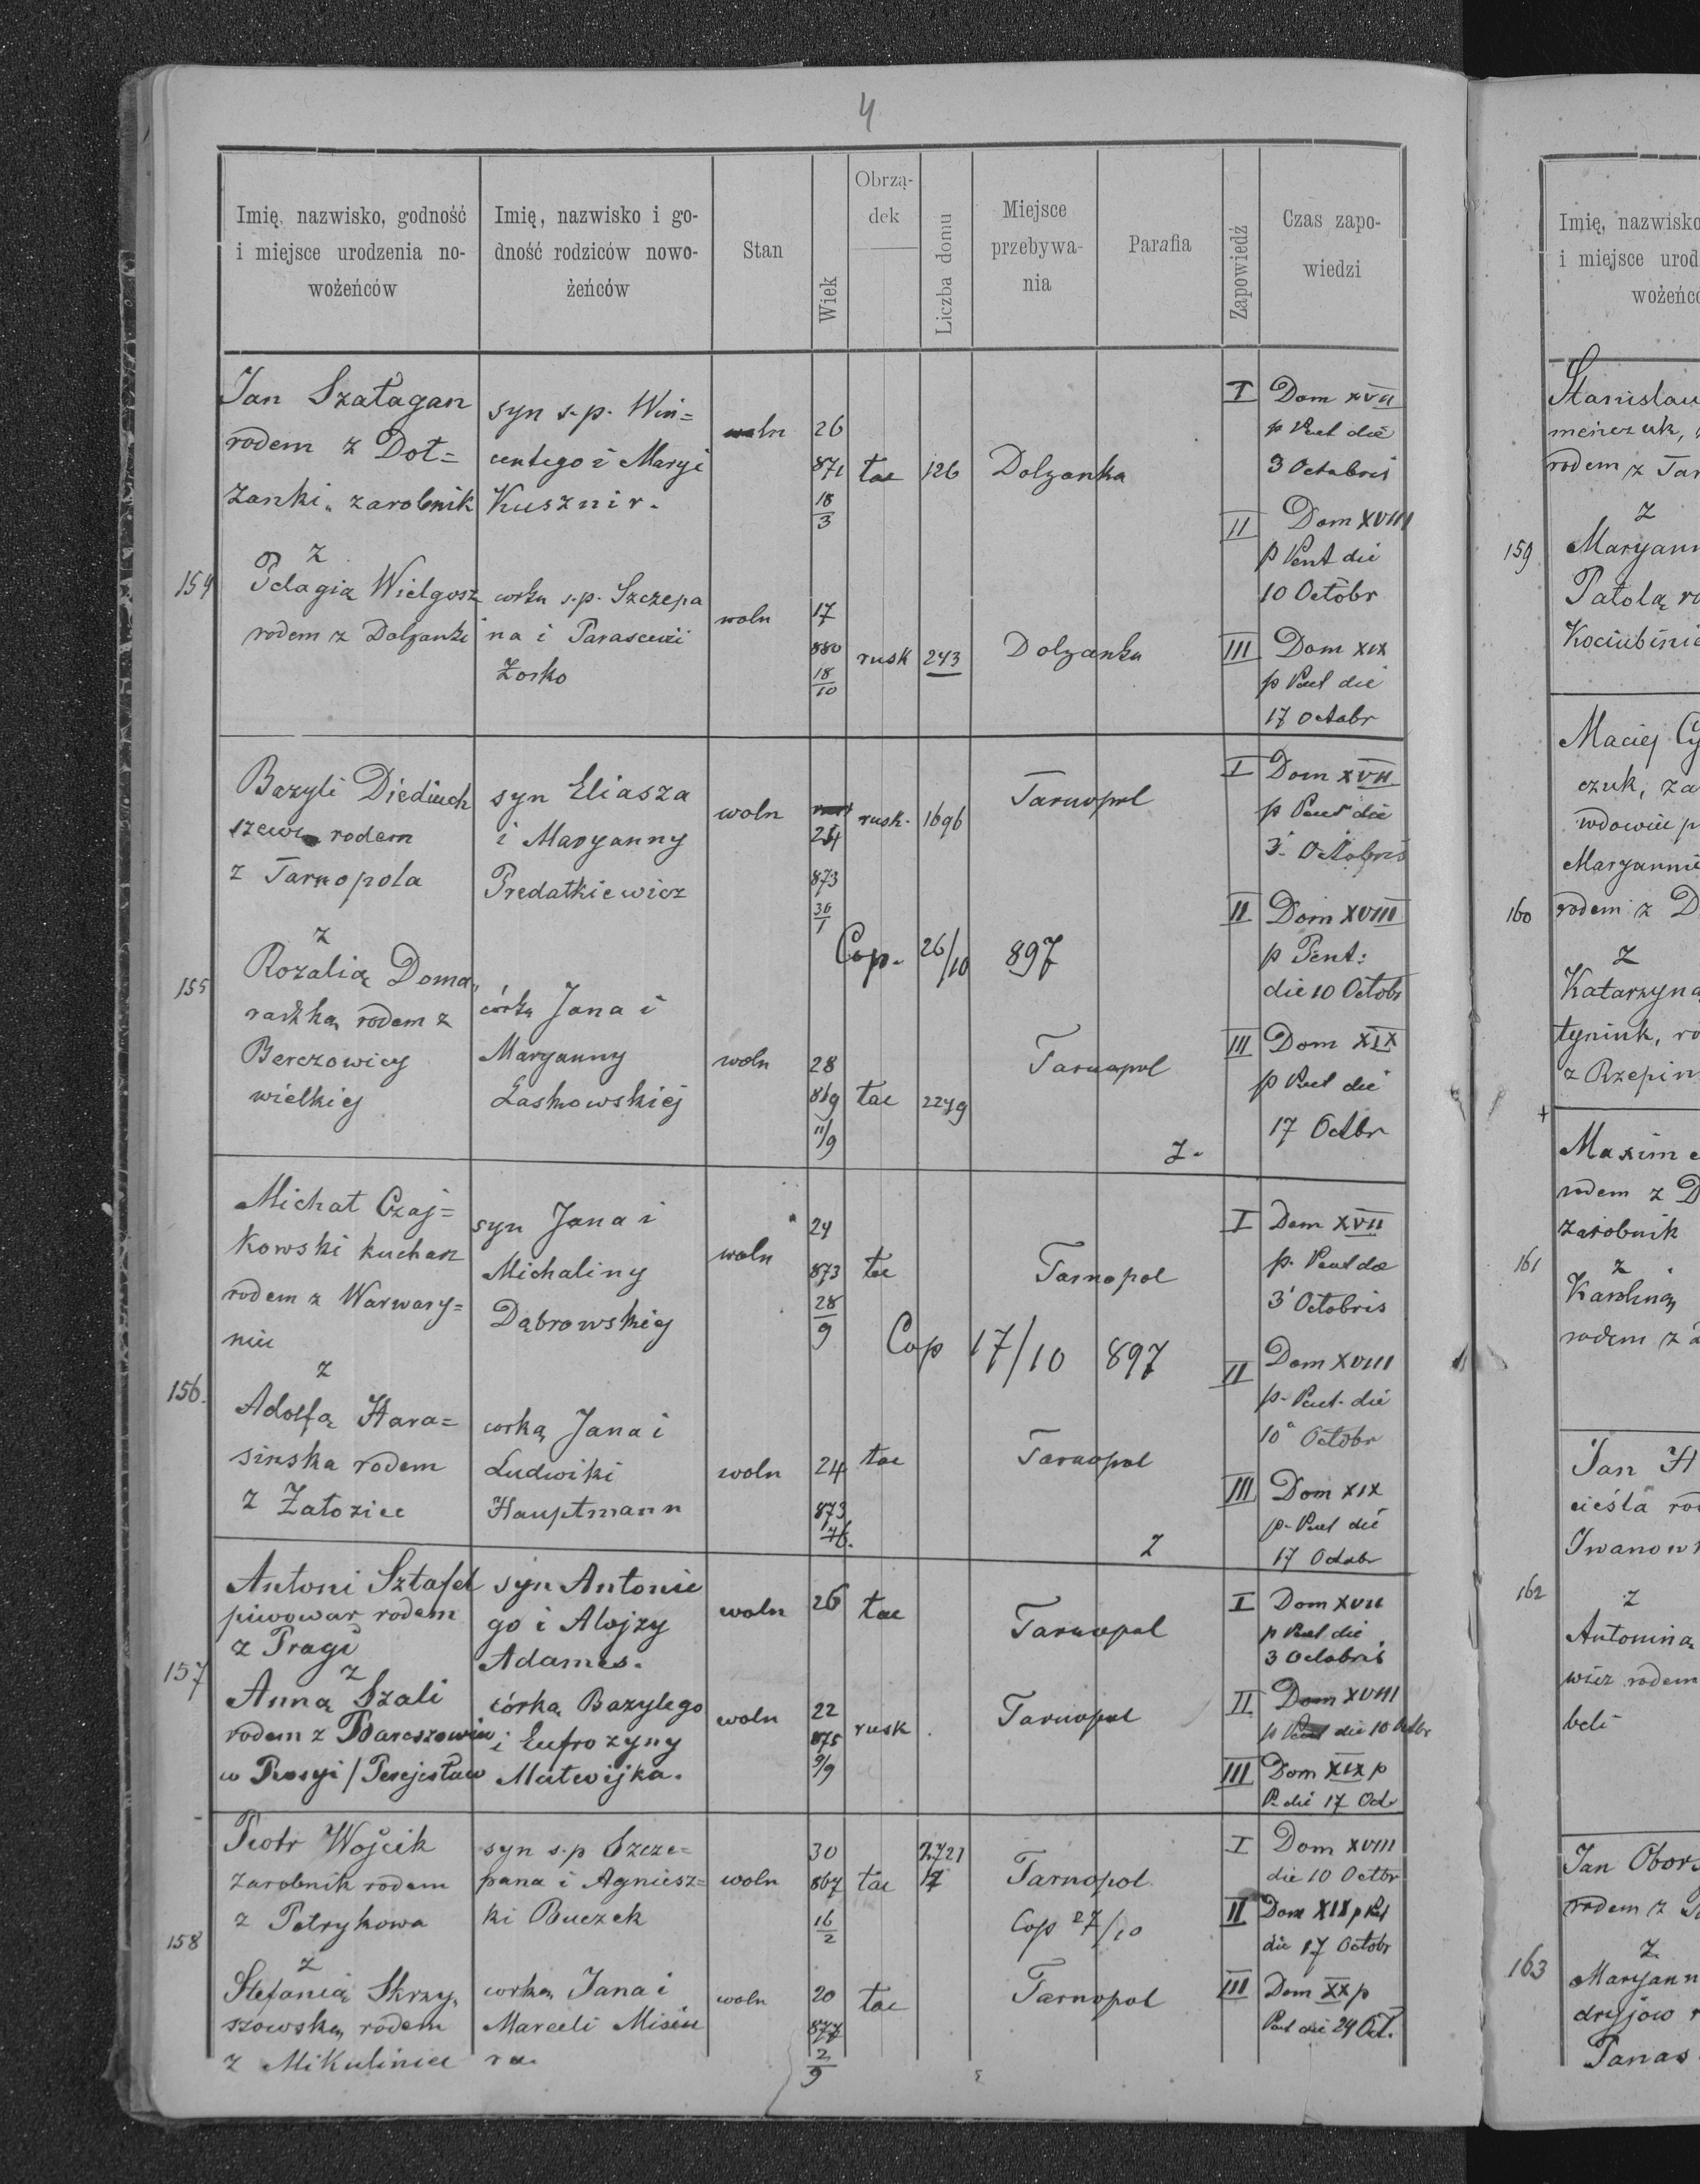 4
Imię, nazwisko, godność
i miejsce urodzenia no-
wożeńców
Imię, nazwisko i go-
dność rodziców nowo-
żeńców
Stan
Wiek
Obrzą-
dek
Liczba domu
Miejsce
przebywa-
nia
Parafia
Zapowiedź
Czas zapo-
wiedzi
154
Jan Szałagan
rodem z Doł=
żanki, zarobnik
z
Pelagią Wielgosz
rodem z Dolżanki
syn s.p. Win=
centego i Maryi
Kusznir.
corka s.p. Szczepa
na i Parascewii
Żosko
woln 26
871 łac 126 Dolzanka
18
3
woln 17
880 rusk 243 Dolzanka
18
10
I Dom XVII
p Pent die
3 Octobris
II Dom XVIII
p Pent die
10 Octobr
III Dom XIX
p Pent die
17 Octobr
155
Bazyli Diediuch
szewc rodem
z Tarnopola
z
Rozalią Doma
radzką rodem z
Berezowicy
wielkiej
syn Eliasza
i Maryanny
Predatkiewicz
córką Jana i
Maryanny
Laskowskiej
woln 24 rusk. 1696 Tarnopol
873
30
1
Cop. 26/10 897
woln 28 Tarnopol
869 łac 2279
11/9
Z.
I Dom XVII
p Pent die
3. Octobris
II Dom XVIII
p Pent:
die 10 Octobr
III Dom XIX
p Pent die
17 Octbr
156.
Michał Czaj=
kowski kucharz
rodem z Warwary=
niec
z
Adolfą Hara=
sinska rodem
z Załoziec
syn Jana i
Michaliny
Dąbrowskiej
corką Jana i
Ludwiki
Hauptmann
woln 24
873 łac Tarnopol
28
9
Cop 17/10 897
woln 24 łac Tarnopol
873
Z
I Dom XVII
p. Pent die
3 Octobris
II Dom XVIII
p. Pent. die
10 Octobr
III Dom XIX
p. Pent die
17 Octobr
157
Antoni Sztafel
piwowar rodem
z Pragi
z
Anną Szali
w Rosyi
syn Antonie
go i Alojzy
Adames.
córką Bazylego
i Eufrozyny
Matwijka.
woln 26 łac Tarnopol
woln 22 rusk. Tarnopol
875
9/9
I Dom XVII
p Pent die
3 Octobris
II Dom XVIII
p Pent die 10 Octbr
III Dom XIX p
P. die 17 Oct
158
Piotr Wojcik
zarobnik rodem
z Petrykowa
z
Stefanią Skrzy,
szowską rodem
z Mikuliniec
syn s.p Szcze=
pana i Agniesz=
ki Buczek
corką Jana i
Marceli Misiu
ra.
30 2721
woln 867 łac 17 Tarnopol
16
2
Cop 27/10
woln 20 łac Tarnopol
877
2
9
I Dom XVIII
die 10 Octbr
II Dom XIX p Pent
die 17 Octobr
III Dom XX p
Pent die 24 Oct.
Imię, nazwisko
i miejsce urod
wożeńcó
159
Stanisław
rodem z Tar
z
Maryann
Patolą ro
160
Maciej Cy
czuk, za
Maryannie
rodem z D
z
Katarzyna
z Rzepin
161
rodem z D
zarobnik
z
Karoliną
rodem z
162
Jan H
cieśla ro
Iwanow
z
Antonina
wicz rodem
163
Jan Obor
rodem z
z
Maryann
Panas